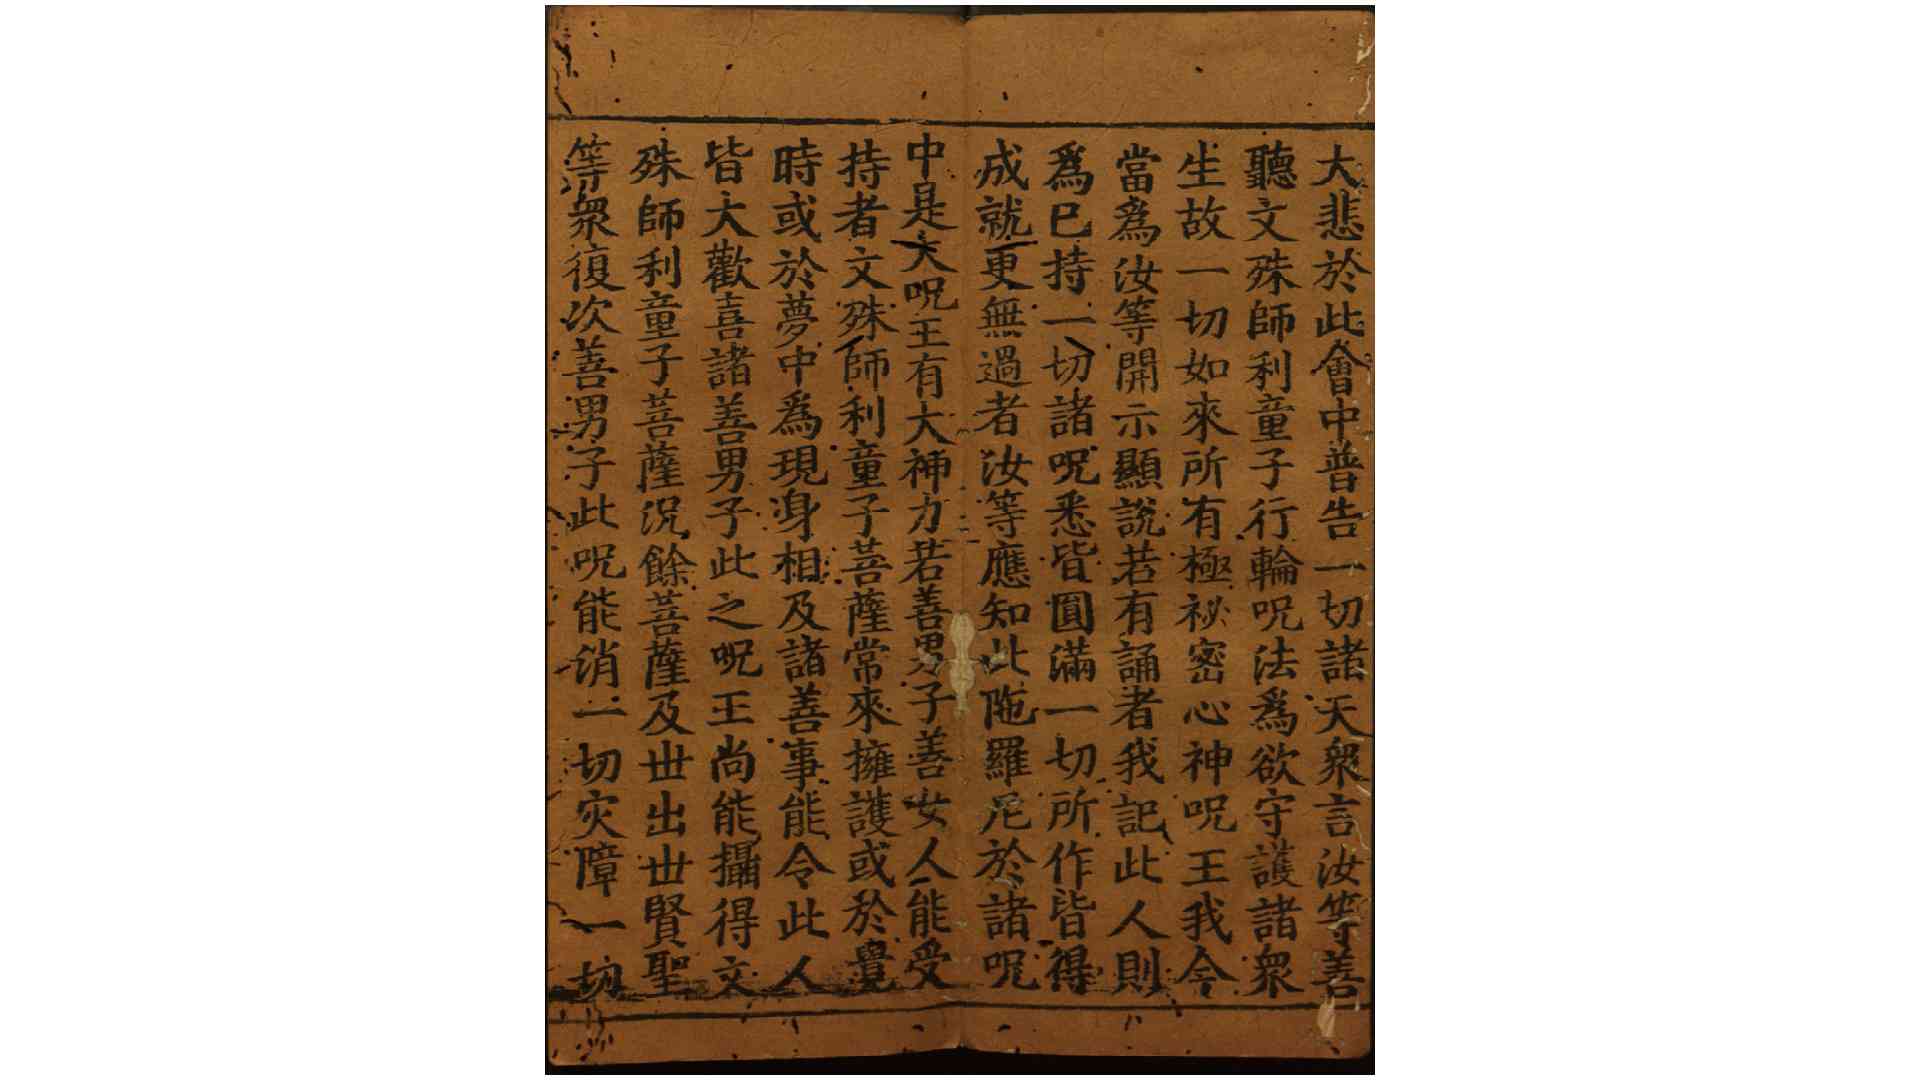 大悲於此會中普告一切諸天衆言汝等善
聽文殊師利童子行輪呪法爲欲守護諸衆
生故一切如來所有極祕密心神呪王我今
當爲汝等開示顯説若有誦者我記此人則
爲已持一切諸呪悉皆圓滿一切所作皆得
成就更無過者汝等應知此陁羅尼於諸呪
中是大呪王有大神力若善男子善女人能受
持者文殊師利童子菩薩常來擁護或於覺
時或於夢中爲現身相及諸善事能令此人
皆大歡喜諸善男子此之呪王尚能攝得文
殊師利童子菩薩況餘菩薩及丗出丗賢聖
等衆復次善男子此呪能消一切灾障一切